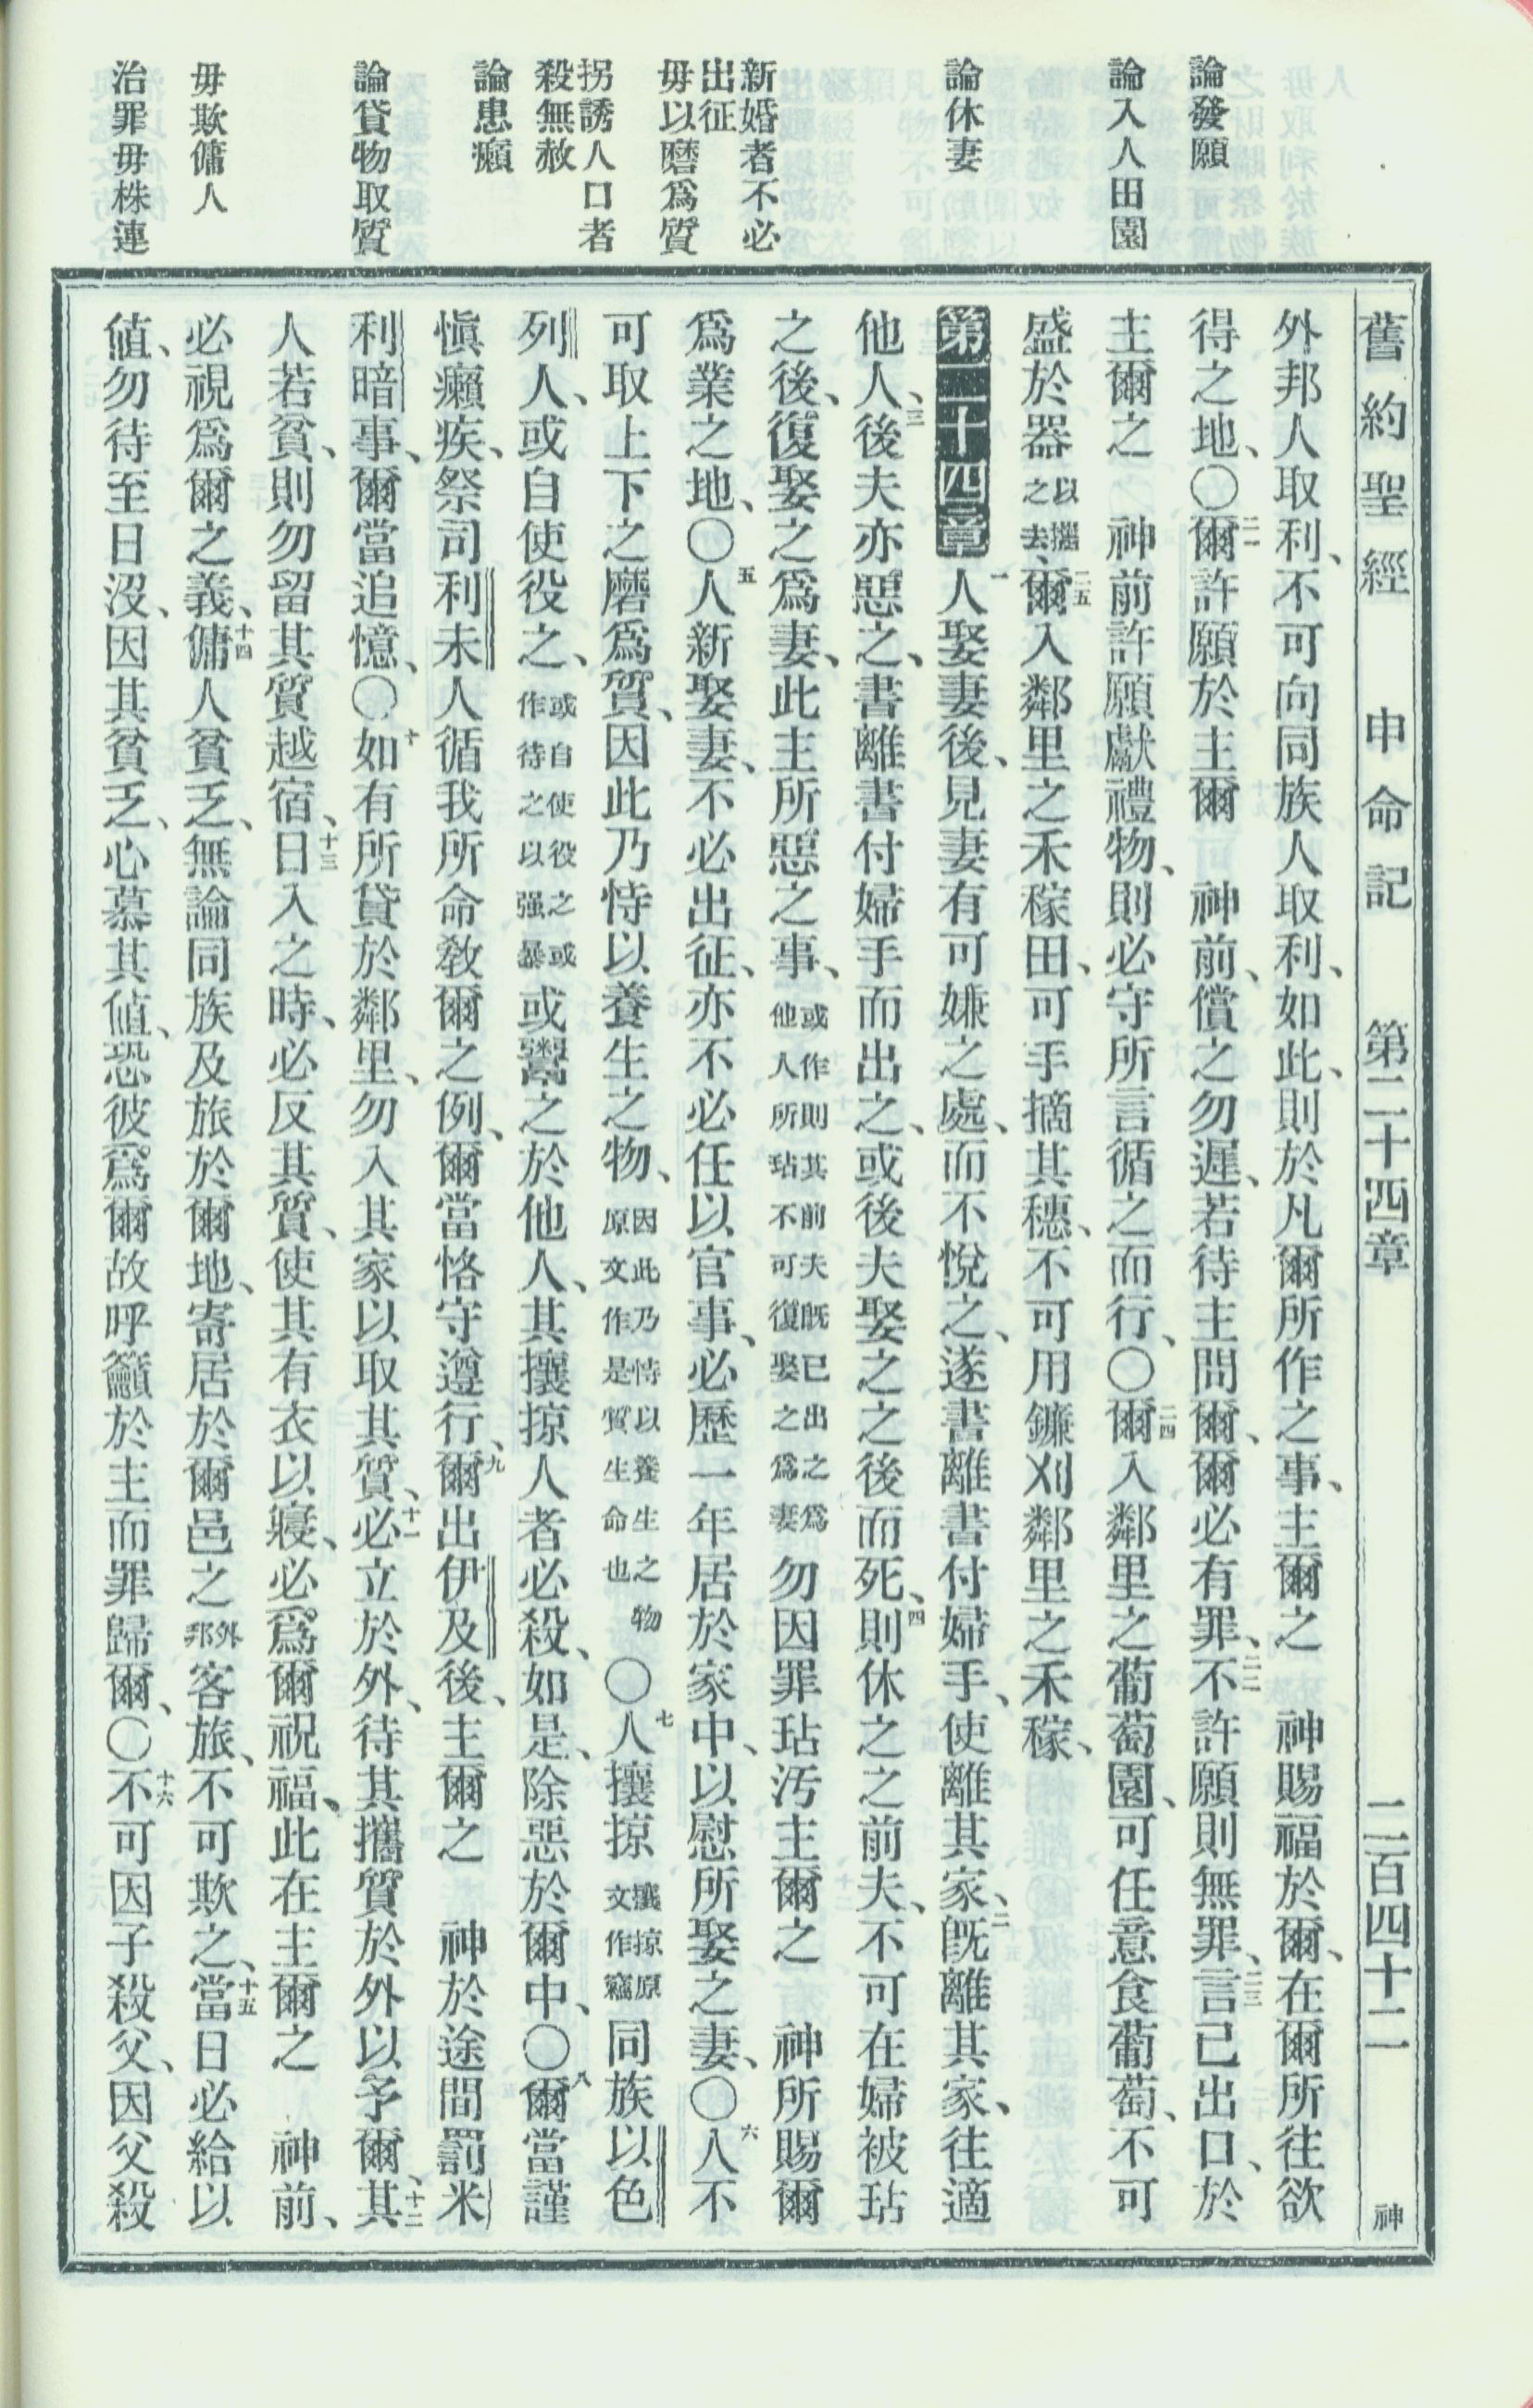 舊約聖經　申命記　第二十四章　二百四十二　神
論發願
論入人田園
論休妻
新婚者不必
出征
毋以磨爲質
拐誘人口者
殺無赦
論患癩
論貸物取質
毋欺傭人
治罪毋株連
外邦人取利、不可向同族人取利、如此、則於凡爾所作之事、主爾之　神賜福於爾、在爾所往欲
得之地、〇二一爾許願於主爾　神前、償之勿遲、若待主問爾、爾必有罪、二二不許願則無罪、二三言已出口、於
主爾之　神前許願獻禮物、則必守所言循之而行、〇二四爾入鄰里之葡萄園、可任意食葡萄、不可
盛於器以攜之去、二五爾入鄰里之禾稼田、可手摘其穗、不可用鐮刈鄰里之禾稼、
第二十四章　一人娶妻後、見妻有可嫌之處、而不悅之、遂書離書付婦手、使離其家、二旣離其家、往適
他人、三後夫亦惡之、書離書付婦手而出之、或後夫娶之之後而死、四則休之之前夫、不可在婦被玷
之後、復娶之爲妻、此主所惡之事、或作則其前夫旣已出之爲他人所玷不可復娶之爲妻勿因罪玷汚主爾之　神所賜爾
爲業之地、〇五人新娶妻、不必出征、亦不必任以官事、必歷一年居於家中、以慰所娶之妻、〇六人不
可取上下之磨爲質、因此乃恃以養生之物、因此乃恃以養生之物原文作是質生命也〇七人攘掠攘掠原文作竊同族以色
列人、或自使役之、或自使役之或作待之以强暴或鬻之於他人、其攘掠人者必殺、如是、除惡於爾中、〇八爾當謹
愼癩疾、祭司利未人循我所命敎爾之例、爾當恪守遵行、九爾出伊及後、主爾之　神於途間罰米
利暗事、爾當追憶、〇十如有所貸於鄰里、勿入其家以取其質、十一必立於外、待其攜質於外以予爾、十二其
人若貧、則勿留其質越宿、十三日入之時、必反其質、使其有衣以寢、必爲爾祝福、此在主爾之　神前、
必視爲爾之義、十四傭人貧乏、無論同族及旅於爾地、寄居於爾邑之外邦客旅、不可欺之、十五當日必給以
値、勿待至日沒、因其貧乏、心慕其値、恐彼爲爾故呼籲於主而罪歸爾、〇十六不可因子殺父、因父殺